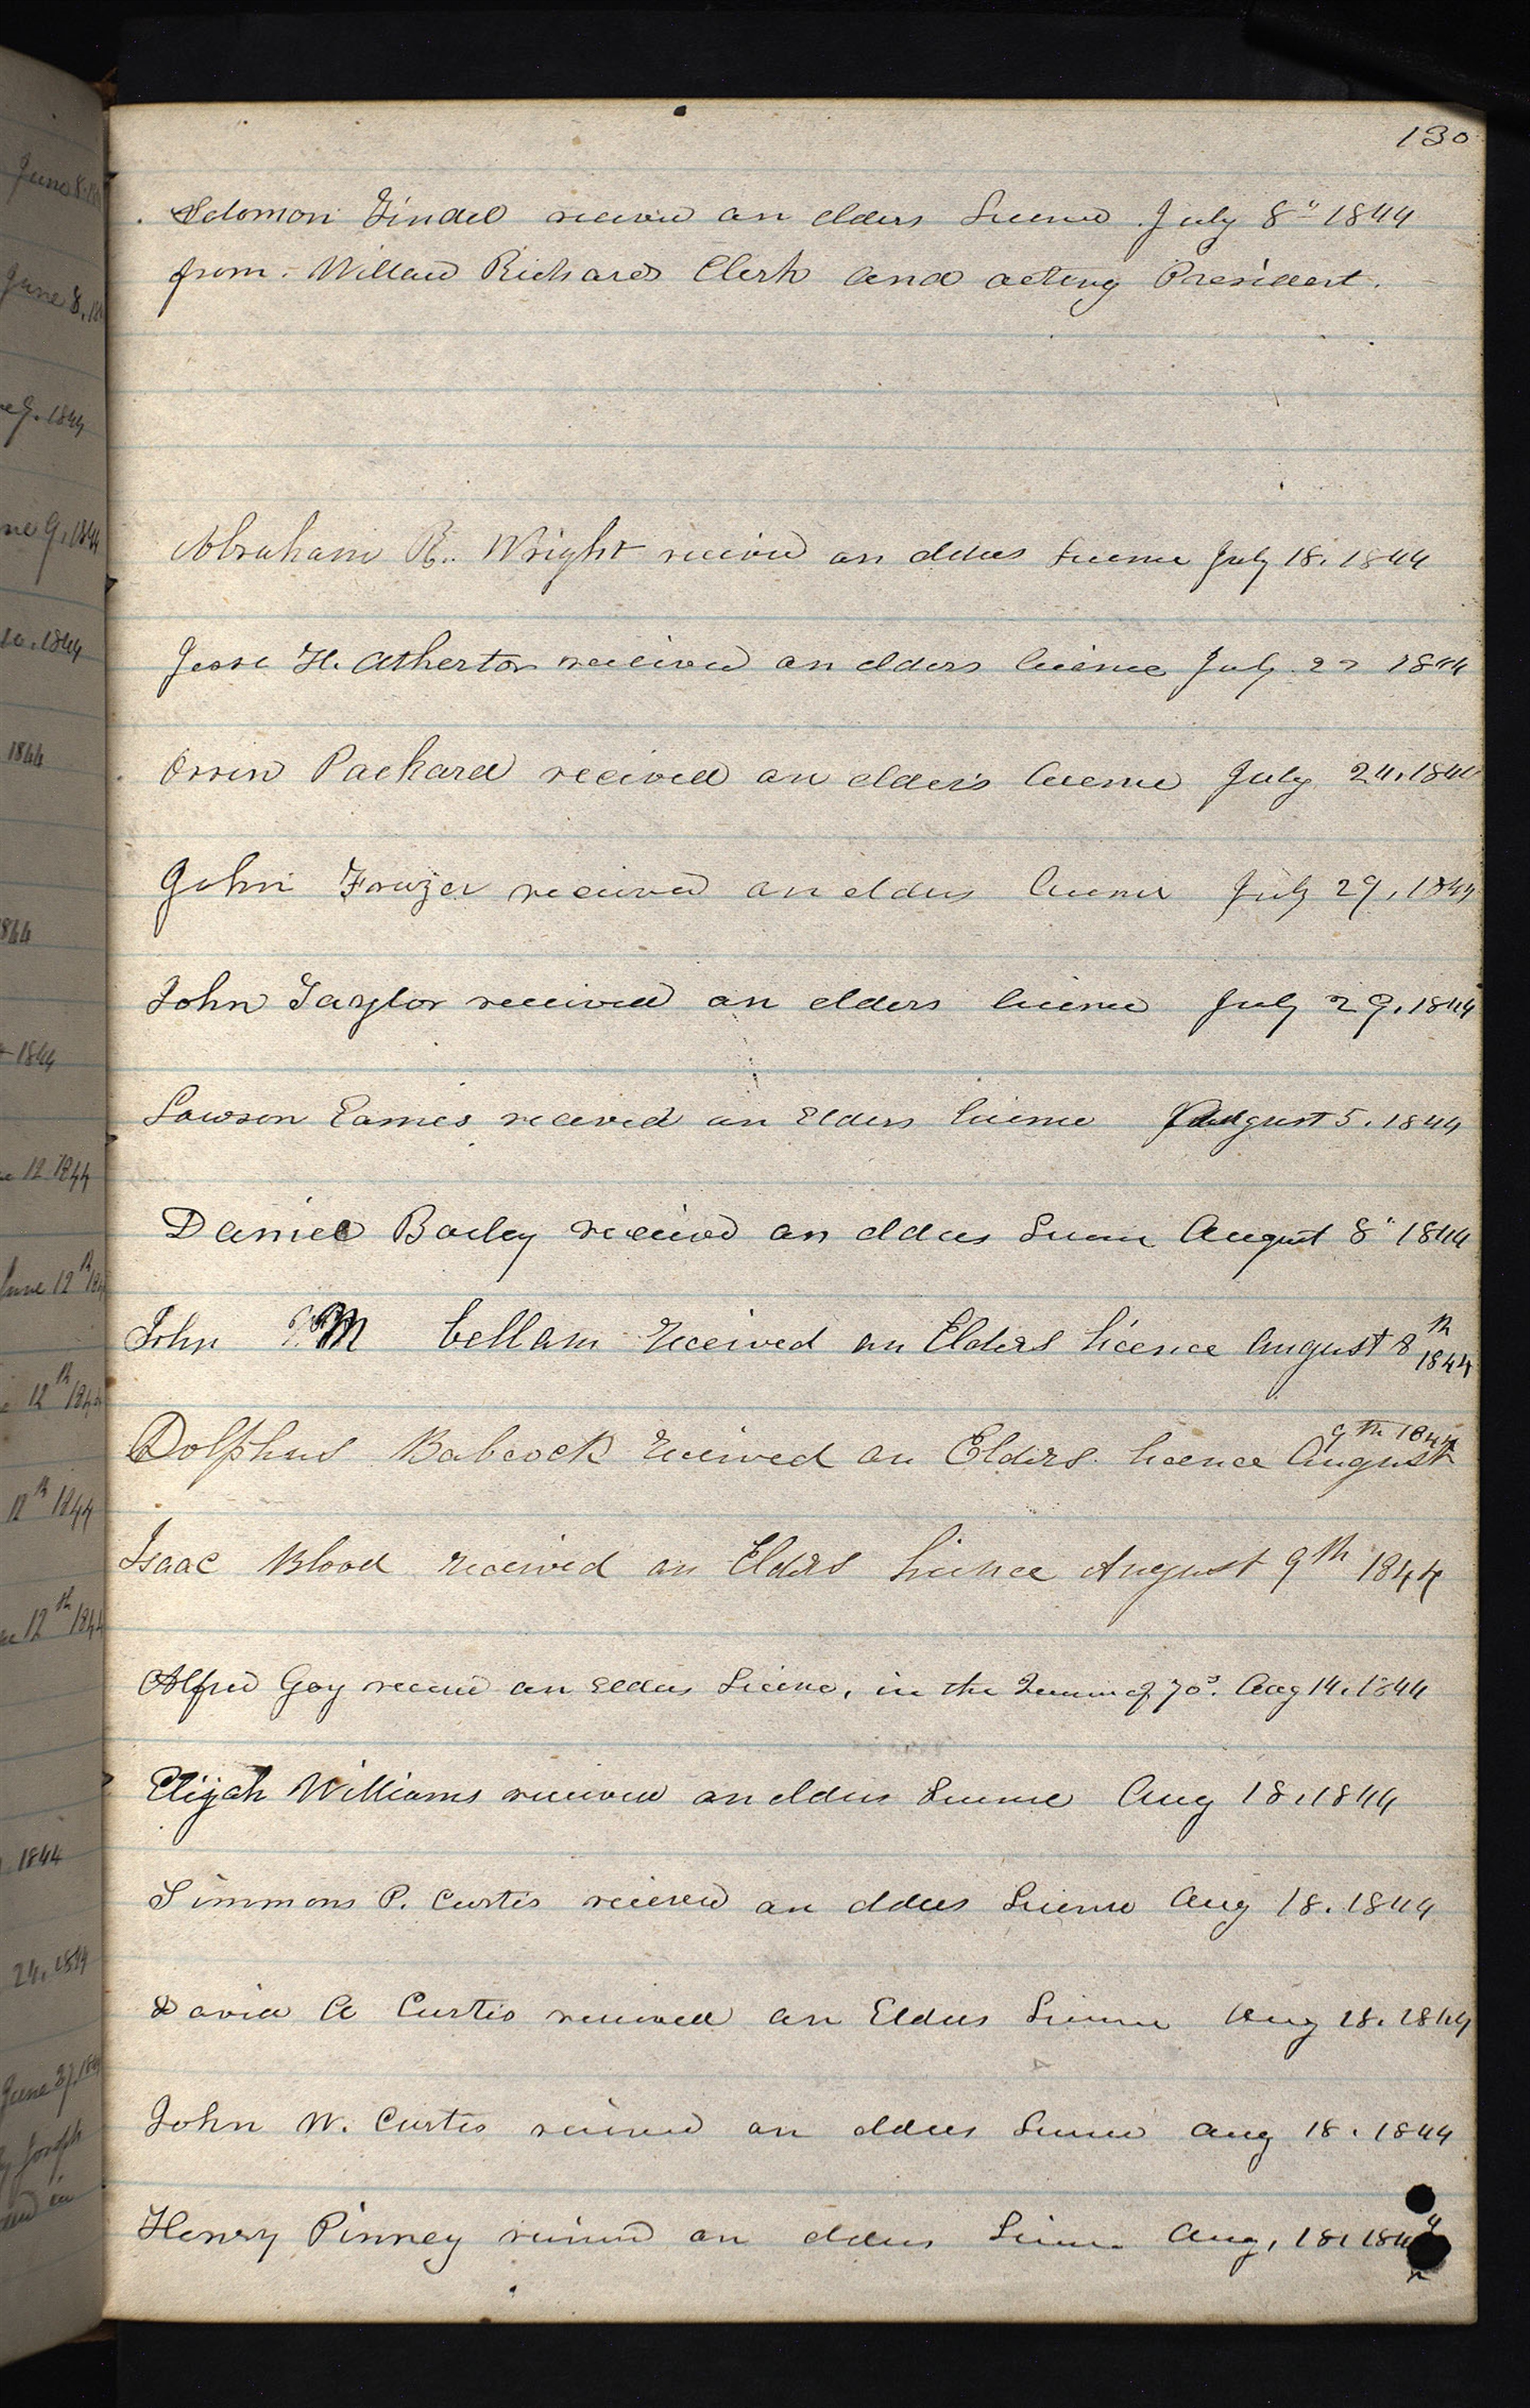 130
Solomon Tindel received an elders License July 8" 1844
from Willard Richards Clerk and acting President.
Abraham R. Wright received an elders License July 18. 1844
Jesse H. Atherton received an elders license July 22 1844
Orrin Packard received an elders license July 24, 1844
John Frazer received an elders license July 29, 1844
John Taylor received an elders license July 29, 1844
Lawson Eames received an Elders license August 5. 1844
Daniel Bailey received an elders License August 8" 1844
John M Cellam received an Elders licence August 8th 1844
Dolphus Babcock received an Elders licence August 9th 1844
Isaac Blood received an Elders licence August 9th 1844
Alfred Gay received an Elders License, in the Quorum of 70s. Aug 14. 1844
Elijah Williams received an elders License Aug 18, 1844
Simmons P. Curtis received an elders License Aug 18. 1844
David A Curtis received an Elders License Aug 18. 1844
John W. Curtis received an elders License Aug 18. 1844
Henry Pinney received an elders License Aug, 18, 1844
June 8.
June 8.
9. 1844
ne 9, 1844
10. 1844
1844
1844
1844
12 1844
June 12th
12th 1844
12th 1844
12th 1844
1844
24, 1844
June 27, 1844
Joseph